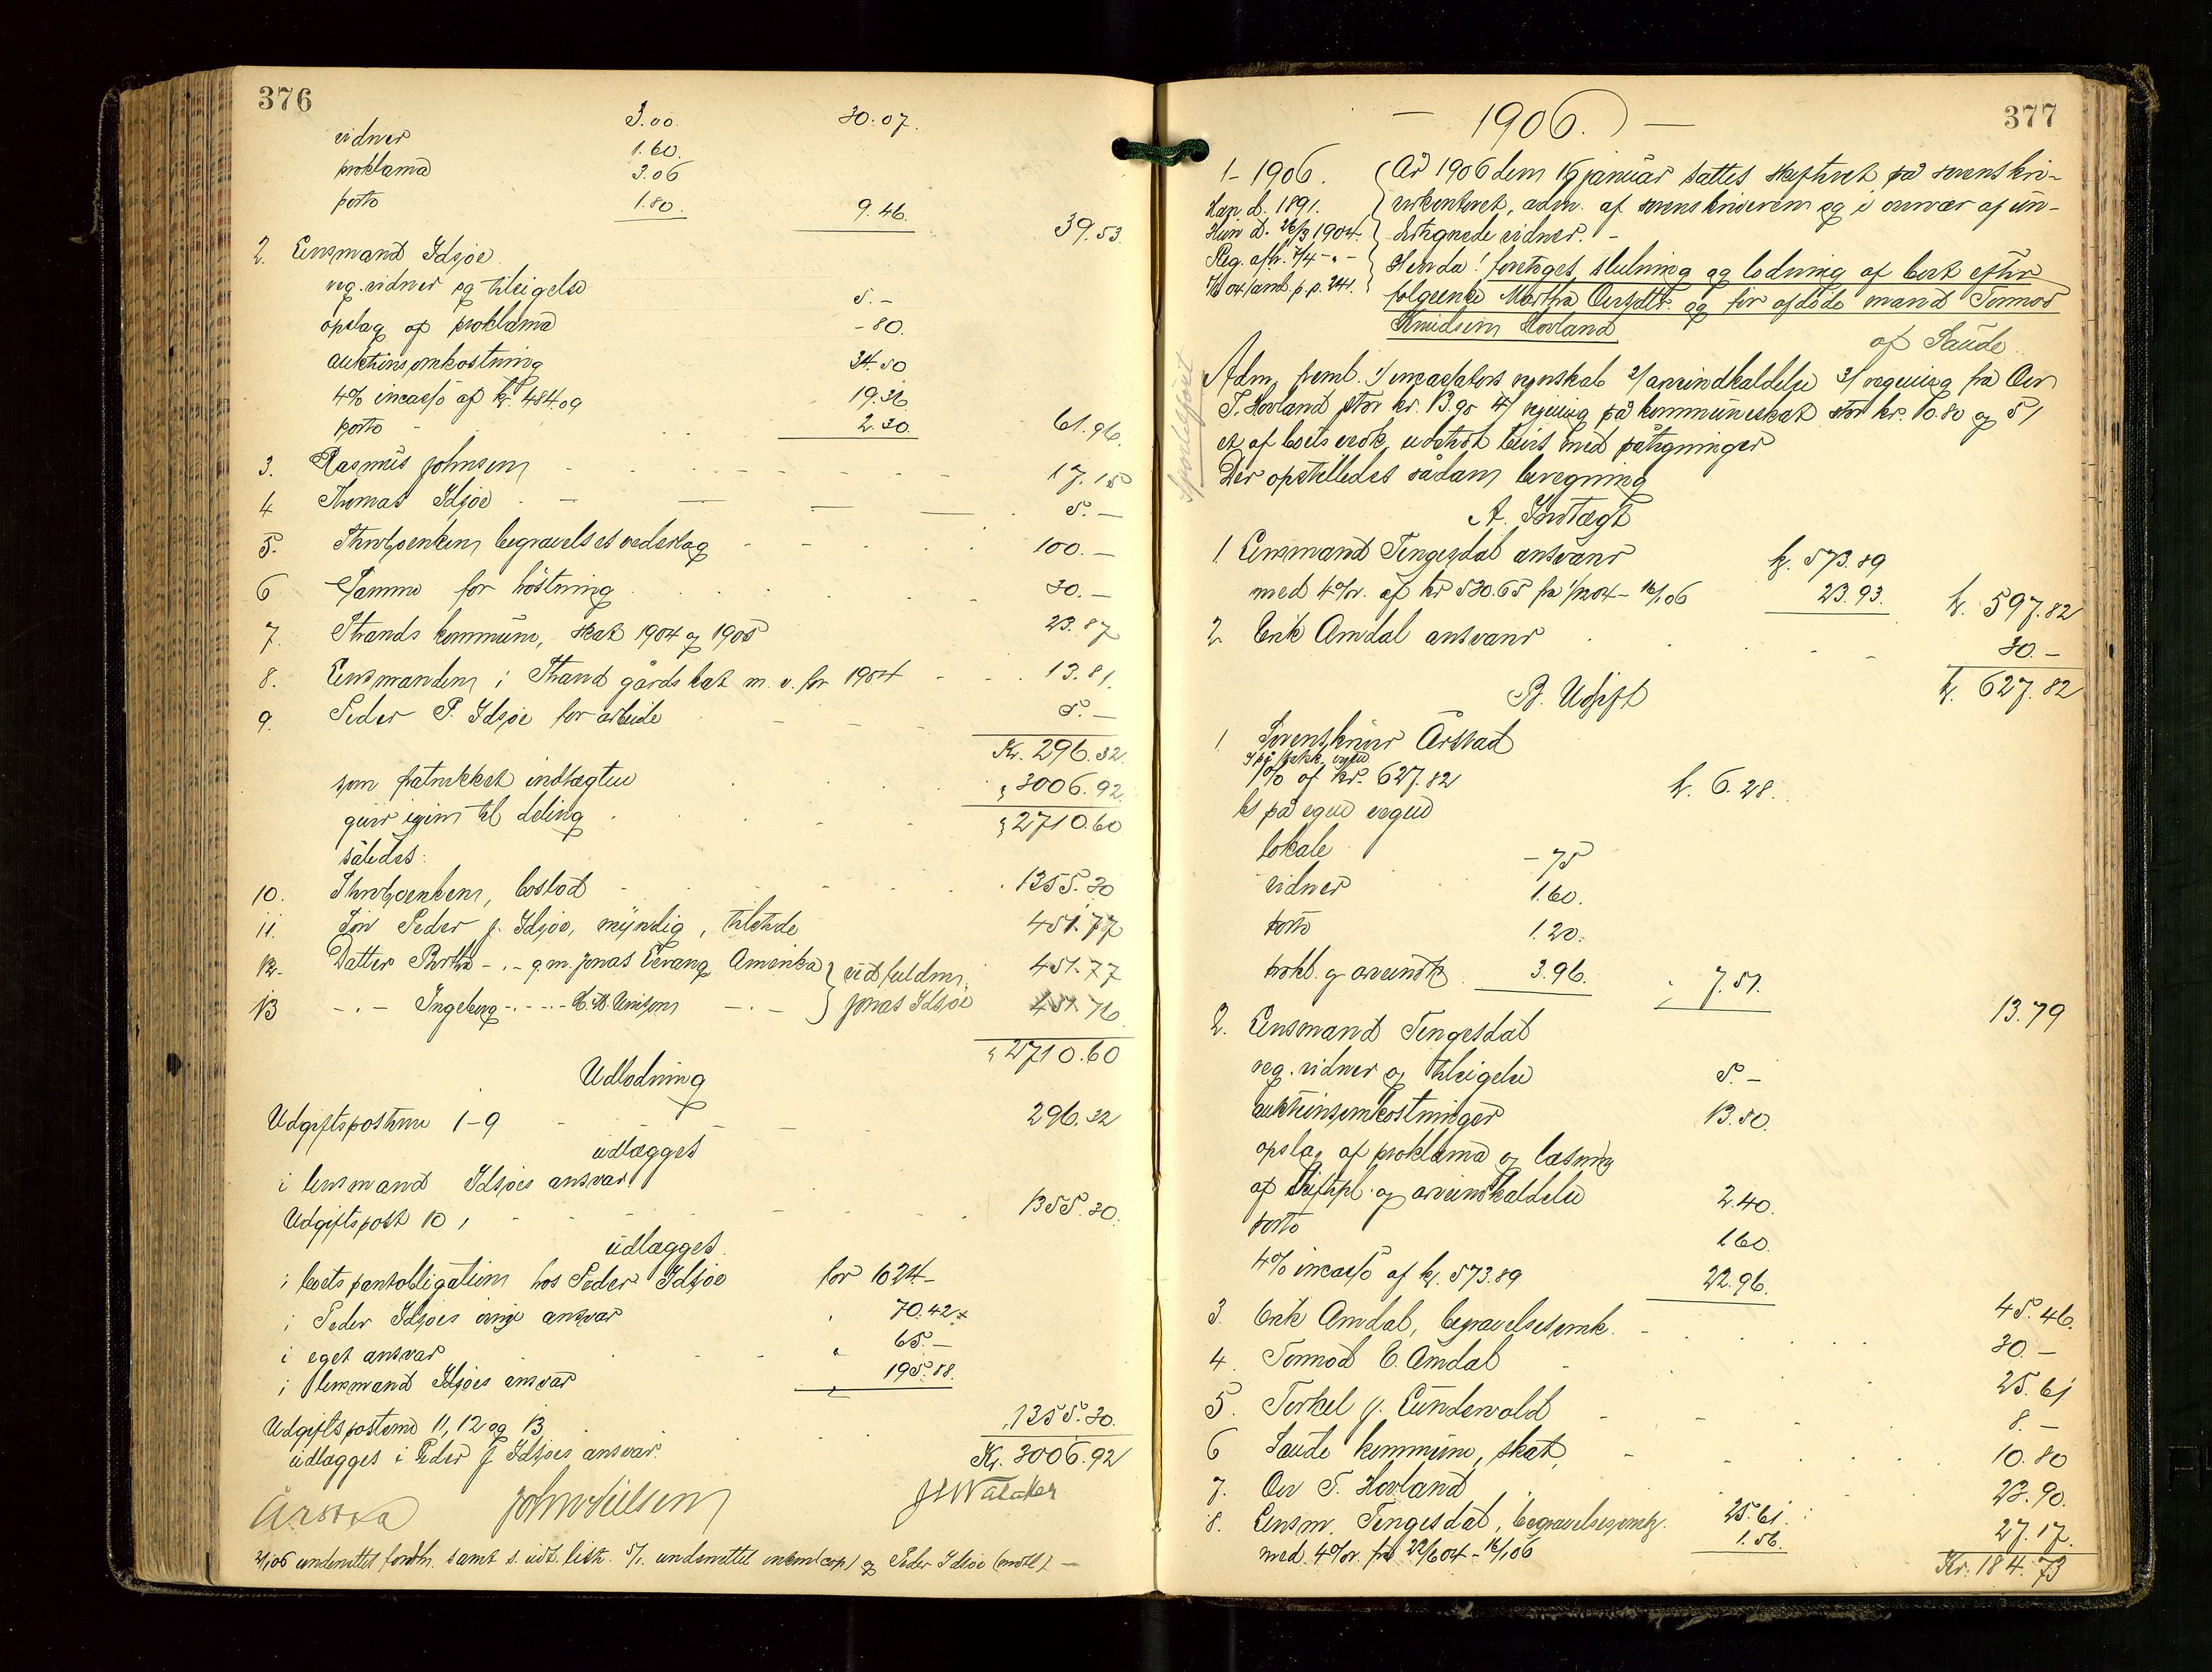 376
3.00 30.07.
vidner 1.60.
proklama 3.06
porto 1.80. 9.46. 39.53.
2. Lensmand Idsøe
reg. vidner og tilsigelse 5.-
opslag af proklama -80.
auktionsomkostning 34.50
4% incasso af kr. 484.09 19.36
porto 2.30. 61.96.
3. Rasmus Johnsen 17.15
4 Thomas Idsøe 5.-
5. Enken begravelsesvederlag 100.-
6 Samme for høstning 30.-
7. Strands kommune, skat 1904 og 1905 23.87
8. Lensmanden i Strand gårdskat m.v. for 1904 13.81.
9. Peder P. Idsøe for arbeide 5.-
Kr. 296.32.
som fratrukket indtægten " 3006.92
giver igjen til deling " 2710.60
således:
10. Enken, boslod 1355.30
11. Søn Peder J. Idsøe, myndig, tilstede 451.77
12. Datter Berta - " - g.m. Jonas Levang, Amerika } ved fuldm. 451.77
13 - " - Ingeborg - " - - - - " - } Jonas Idsøe 451.76
" 2710.60
Udlodning
Udgiftsposterne 1-9 296.32
udlægges
i lensmand Idsøes ansvar
Udgiftspost 10, 1355.30.
udlægges
i boets pantobligation hos Peder Idsøe for 1024-
i Peder Idsøes øvrige ansvar " 70.42
i eget ansvar " 65.-
i lensmand Idsøes ansvar " 195.88.
Udgiftsposterne 11, 12 og 13 1355.30.
udlægges i Peder J Idsøes ansvar. Kr. 3006.92
Årstad John Nilsen J L Walaker
underrettet samt s. udt. underrettet og Peder Idsøe
377
- 1906. -
1-1906.
Han d. 1891.
Hun d. 26/3 1904.
Reg. afh. 7/4 - " -
År 1906 den 16 januar sattes skifteret på sorenskri-
verkontoret, adm. af sorenskriveren og i overvær af un-
dertegnede vidner. -
Herda! foretoges slutning og lodning af boet efter
følgeenke Martha Larsdtr. og før afdøde mand Tormod
Knudsen Hovland
af Saude
Sportelført
Adm. freml. 1/ incassators regnskab 2/ arveindkaldelse 3/ regning fra Lar
T. Hovland stor kr. 13.90 4/ regning på kommuneskat stor kr. 10.80 og 5/
et af boets vedk. udstedt bevis med påtegninger
Der opstilledes sådan beregning
A. Indtægt
1 Lensmand Tengesdal ansvarer kr. 573.89
med 4% r. af kr 530.65 fra 1/12 04 - 16/1 06 23.93. kr. 597.82
2 Erik Amdal ansvarer 30.-
kr. 627.82
B. Udgift
1. Sorenskriver Årstad
1% af kr. 627.82 kr. 6.28.
på egne vegne
lokale -75
vidner 1.60.
porto 1.20.
prokl. og arveindk. 3.96. " 7.51.
13.79
2. Lensmand Tengesdal
reg. vidner og tilsigelse 5.-
auktionsomkostninger 13.50.
opslag af proklama og læsning
af skiftepl. og arveindkaldelse 2.40.
porto 1.60.
4% incasso af kr. 573.89 22.96.
45.46.
3. Erik Amdal, begravelsesomk. 30.-
4. Tormod E. Amdal 25.61
5. Torkel J. Lundevold 8.-
6 Saude kommune, skat, 10.80
7. Lar T. Hovland 23.90.
8. Lensm. Tengesdal, begravelsesomk. 25.61.
med 4% r. fra 22/6 04 - 16/1 06 1.56. 27.17.
Kr. 184.73